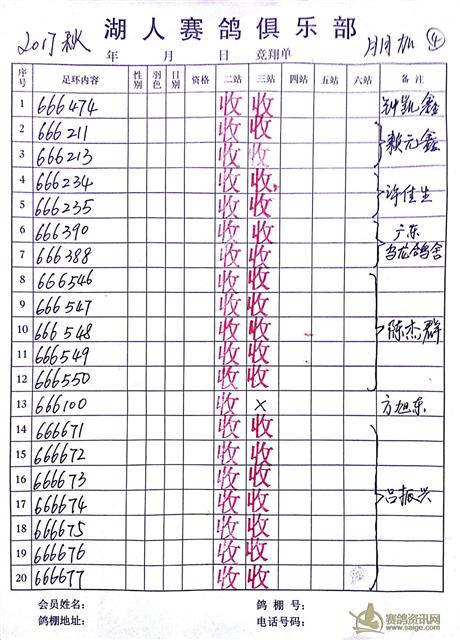 湖人赛鸽俱乐部
2017秋 年 月 日 竞翔单 ④
序号 足环内容 性别 羽色 日别 资格 二站 三站 四站 五站 六站 备注
1 666474 收 收 钟凯鑫
2 666211 收 收 赖元鑫
3 666213 收 收
4 666234 收 收 许佳生
5 666235 收 收
6 666390 收 收 广东
7 666388 收 收 乌龙鸽舍
8 666546 收 收
9 666547 收 收
10 666548 收 收 陈杰群
11 666549 收 收
12 666550 收 收
13 666100 收 × 方旭东
14 666671 收 收
15 666672 收 收
16 666673 收 收
17 666674 收 收 吕振兴
18 666675 收 收
19 666676 收 收
20 666677 收 收
会员姓名: 鸽棚号:
鸽棚地址: 电话号码:
赛鸽资讯网
www.saige.com